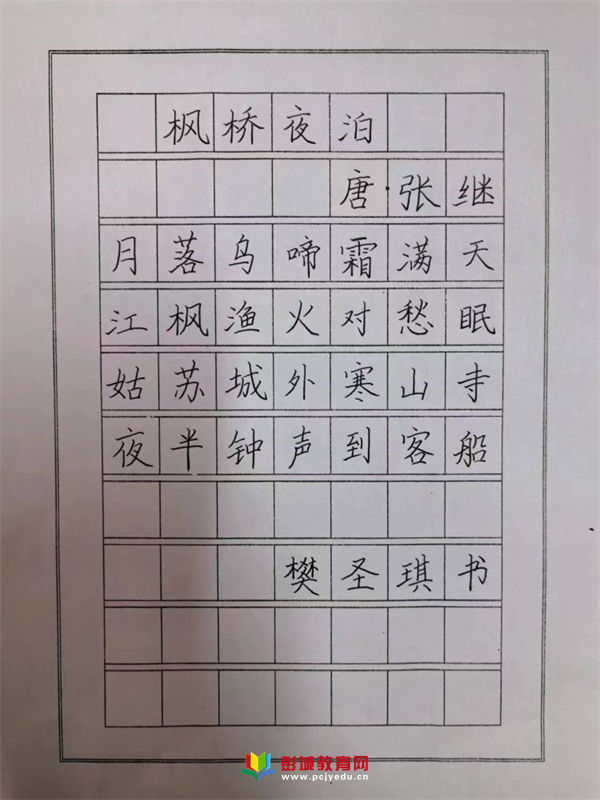 枫桥夜泊
唐·张继
月落乌啼霜满天
江枫渔火对愁眠
姑苏城外寒山寺
夜半钟声到客船
樊圣琪书
彭城教育网
www.pcjyedu.cn